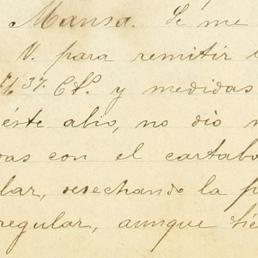 Mansa. Se me
V. para remitir
37. Cts. y medidas
éste abio, no dio
as con el cartabo
lar, desechando la p
regular, aunque tie